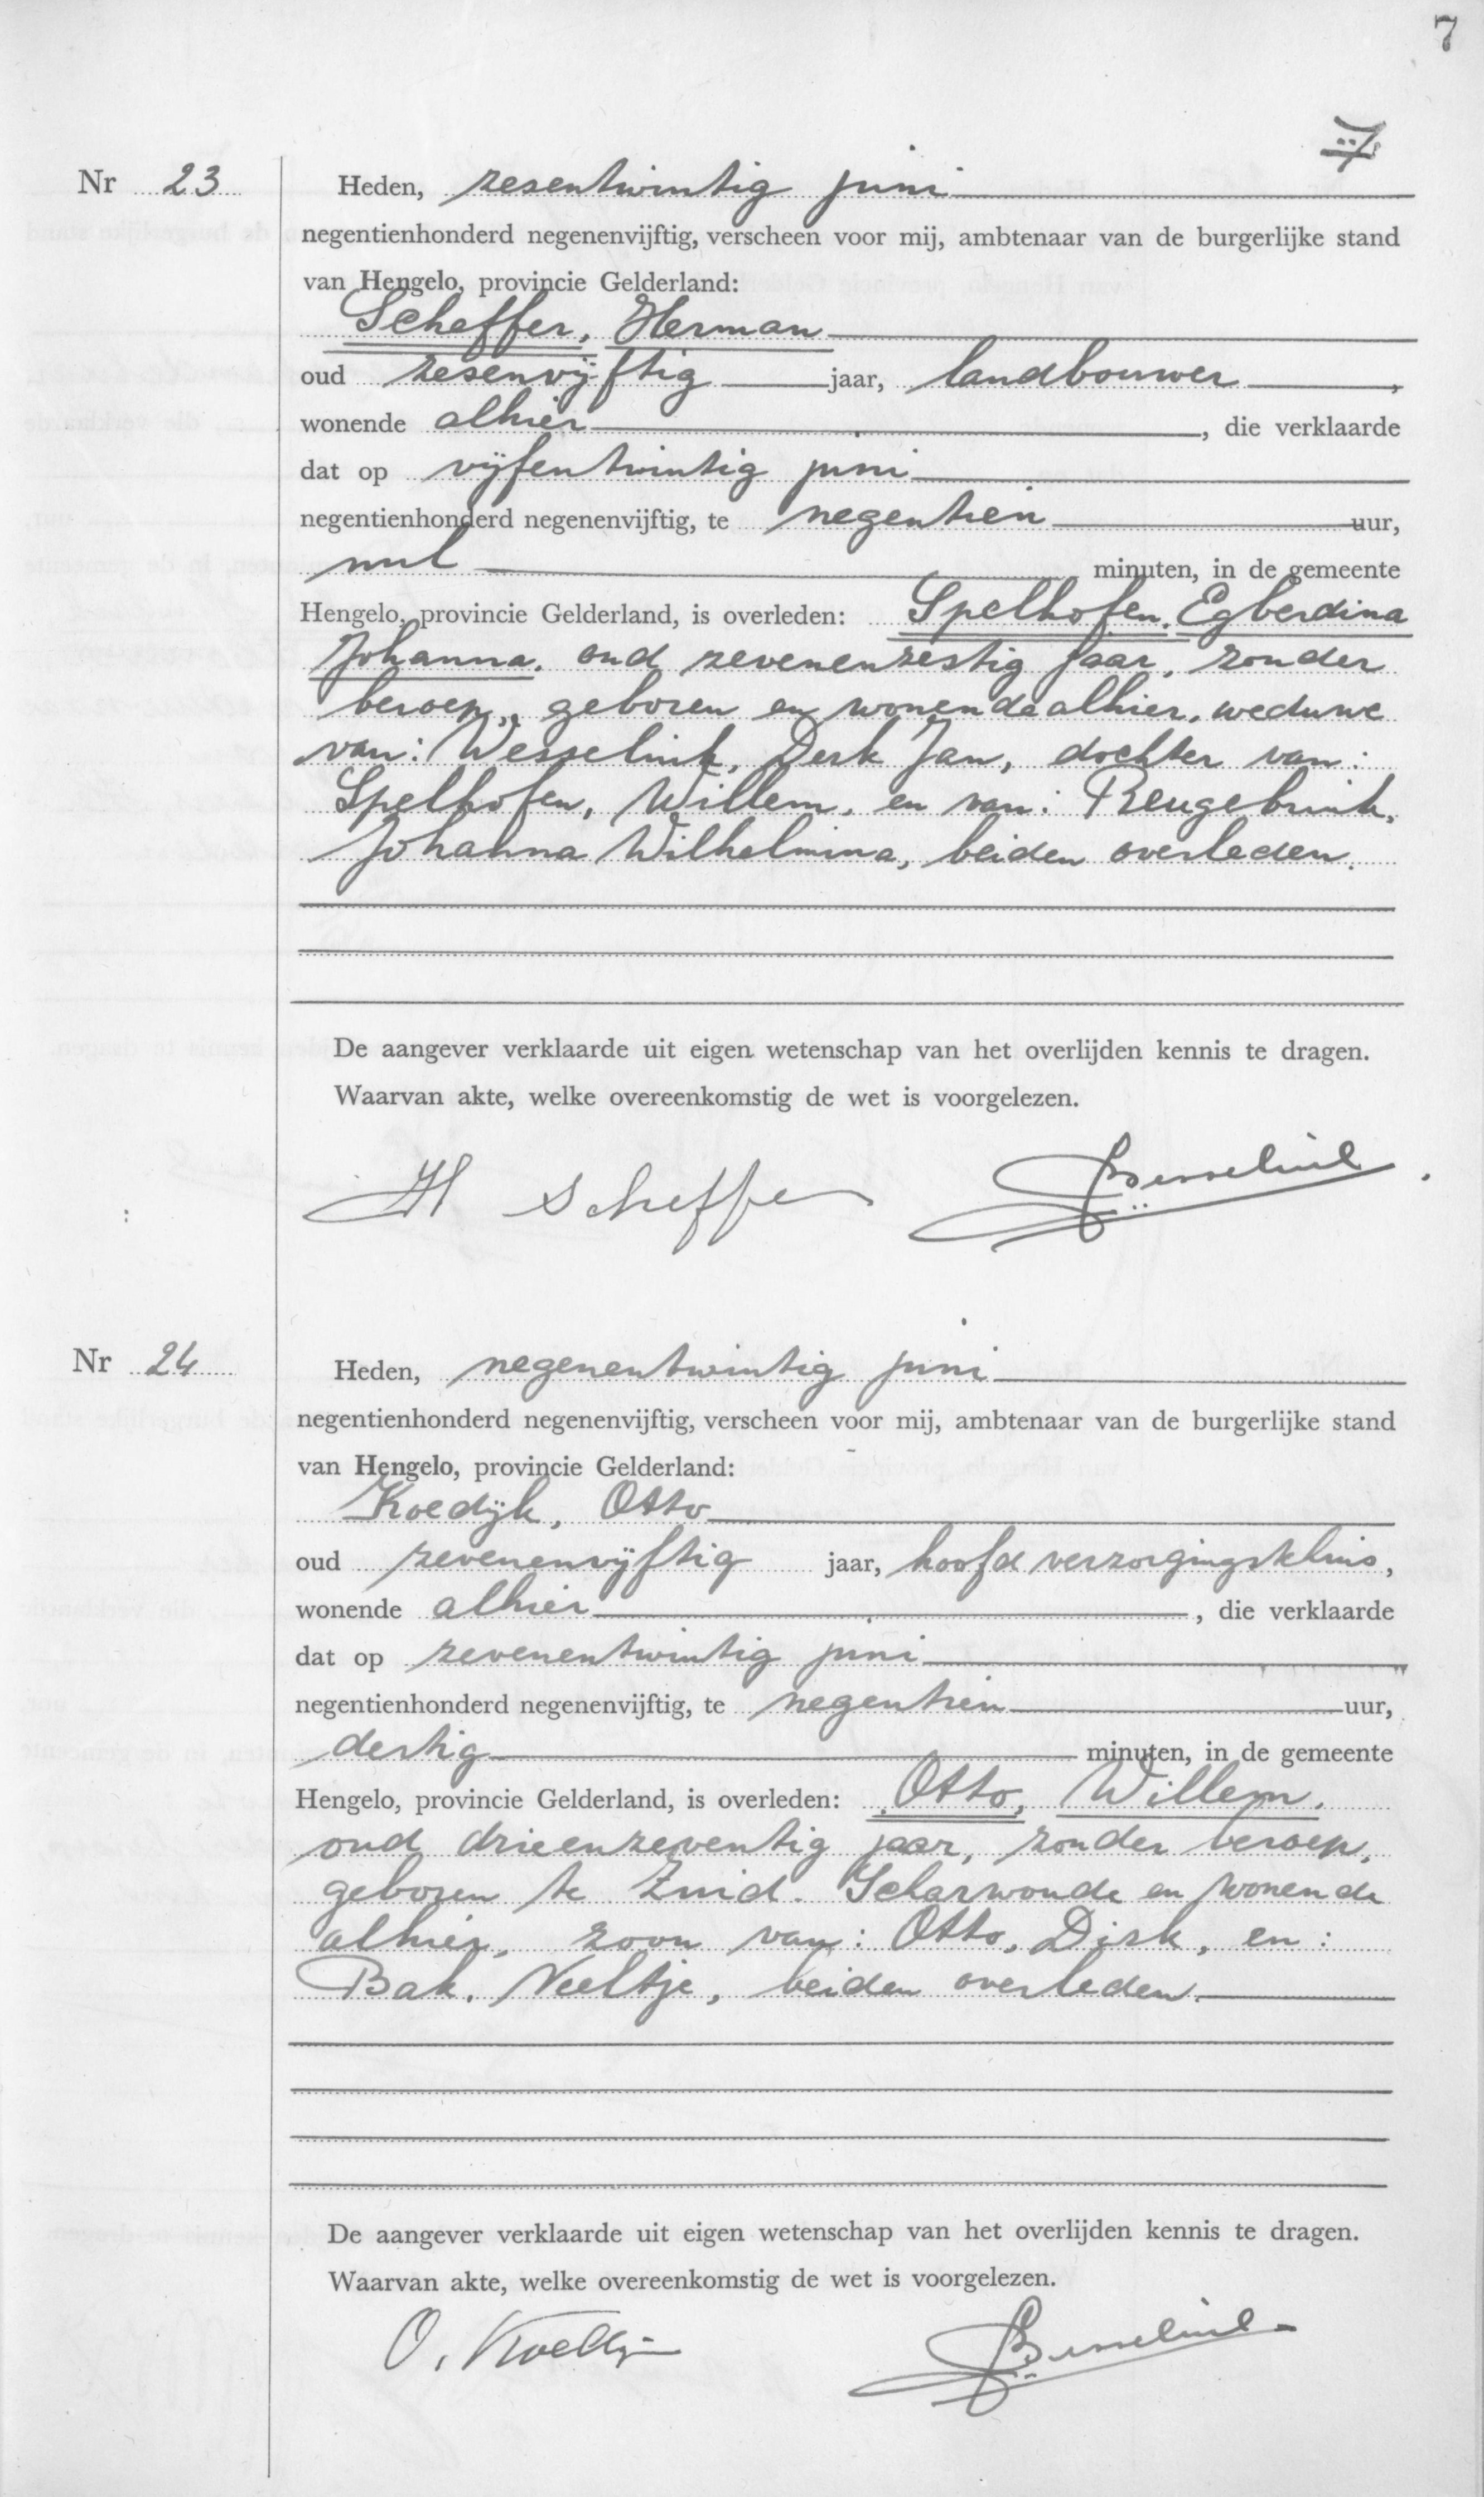 7
7
Nr 23
Heden, zesentwintig juni
negentienhonderd negenenvijftig, verscheen voor mij, ambtenaar van de burgerlijke stand
van Hengelo, provincie Gelderland:
Scheffer, Herman
oud zesenvijftig jaar, landbouwer,
wonende alhier, die verklaarde
dat op vijfentwintig juni
negentienhonderd negenenvijftig, te negentien uur,
nul minuten, in de gemeente
Hengelo, provincie Gelderland, is overleden: Spelhofen, Egberdina
Johanna, oud zevenenzestig jaar, zonder
beroep, geboren en wonende alhier, weduwe
van: Wesselink, Derk Jan, dochter van:
Spelhofen, Willem, en van: Reugebrink,
Johanna Wilhelmina, beiden overleden.
De aangever verklaarde uit eigen wetenschap van het overlijden kennis te dragen.
Waarvan akte, welke overeenkomstig de wet is voorgelezen.
H Scheffer
Nr 24
Heden, negenentwintig juni
negentienhonderd negenenvijftig, verscheen voor mij, ambtenaar van de burgerlijke stand
van Hengelo, provincie Gelderland:
Koedijk, Otto
oud zevenenvijftig jaar, hoofd verzorgingstehuis,
wonende alhier, die verklaarde
dat op zevenentwintig juni
negentienhonderd negenenvijftig, te negentien uur,
dertig minuten, in de gemeente
Hengelo, provincie Gelderland, is overleden: Otto, Willem,
oud drieenzeventig jaar, zonder beroep,
geboren te Zuid-Scharwoude en wonende
alhier, zoon van: Otto, Dirk, en:
Bak, Neeltje, beiden overleden.
De aangever verklaarde uit eigen wetenschap van het overlijden kennis te dragen.
Waarvan akte, welke overeenkomstig de wet is voorgelezen.
O. Koedijk